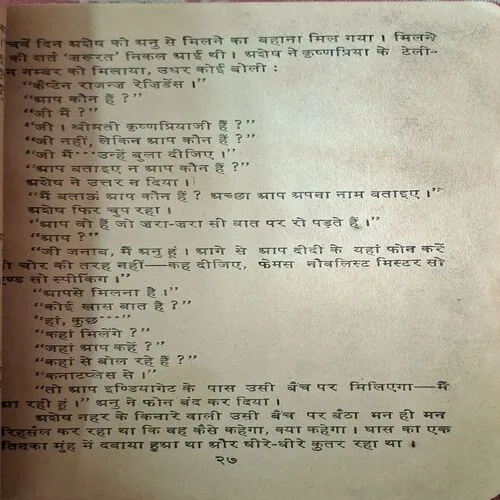 चवें दिन अशेष को अनु से मिलने का बहाना मिल गया । मिलने
की शर्त 'ज़रूरत' निकल आई थी । अशेष ने कृष्णप्रिया के टेली-
न नम्बर को मिलाया, उधर कोई बोली :
“कैप्टेन राजन्ज़ रेज़िडेंस ।”
“आप कौन हैं ?”
“जी मैं ?”
“जी । श्रीमती कृष्णप्रियाजी हैं ?”
“जी नहीं, लेकिन आप कौन हैं ?”
“जी मैं···उन्हें बुला दीजिए ।”
“आप बताइए न आप कौन हैं ?”
अशेष ने उत्तर न दिया ।
“मैं बताऊं आप कौन हैं ? अच्छा आप अपना नाम बताइए ।”
अशेष फिर चुप रहा ।
“आप वो हैं जो ज़रा-ज़रा सी बात पर रो पड़ते हैं ।”
“आप ?”
“जी जनाब, मैं अनु हूं । आगे से आप दीदी के यहां फोन करें
तो चोर की तरह नहीं—कह दीजिए, फेमस नौवलिस्ट मिस्टर सो
एण्ड सो स्पीकिंग ।”
“आपसे मिलना है ।”
“कोई खास बात है ?”
“हां, कुछ···”
“कहां मिलेंगे ?”
“जहां आप कहें ?”
“कहां से बोल रहे हैं ?”
“कनाटप्लेस से ।”
“तो आप इण्डियागेट के पास उसी बैंच पर मिलिएगा—मैं
आ रही हूं ।” अनु ने फोन बंद कर दिया ।
अशेष नहर के किनारे वाली उसी बैंच पर बैठा मन ही मन
रिहर्सल कर रहा था कि वह कैसे कहेगा, क्या कहेगा । घास का एक
तिनका मुंह में दबाया हुआ था और धीरे-धीरे कुतर रहा था ।
२७